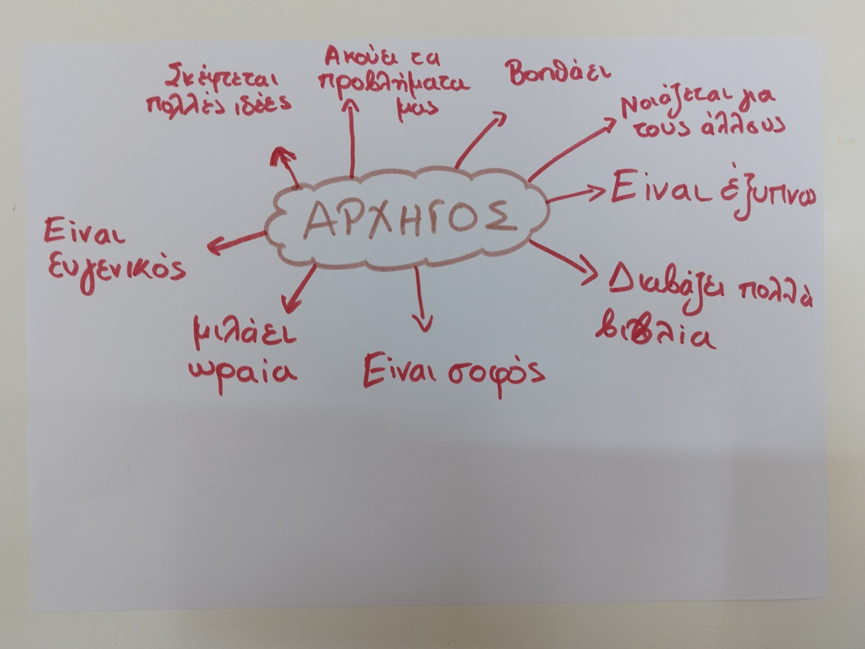 Σκέφτεται
πολλές ιδέες
Ακούει τα
προβλήματα
μας
Βοηθάει
Νοιάζεται για
τους άλλους
ΑΡΧΗΓΟΣ
Είναι έξυπνος
Είναι
ευγενικός
Διαβάζει πολλά
βιβλία
μιλάει
ωραία
Είναι σοφός